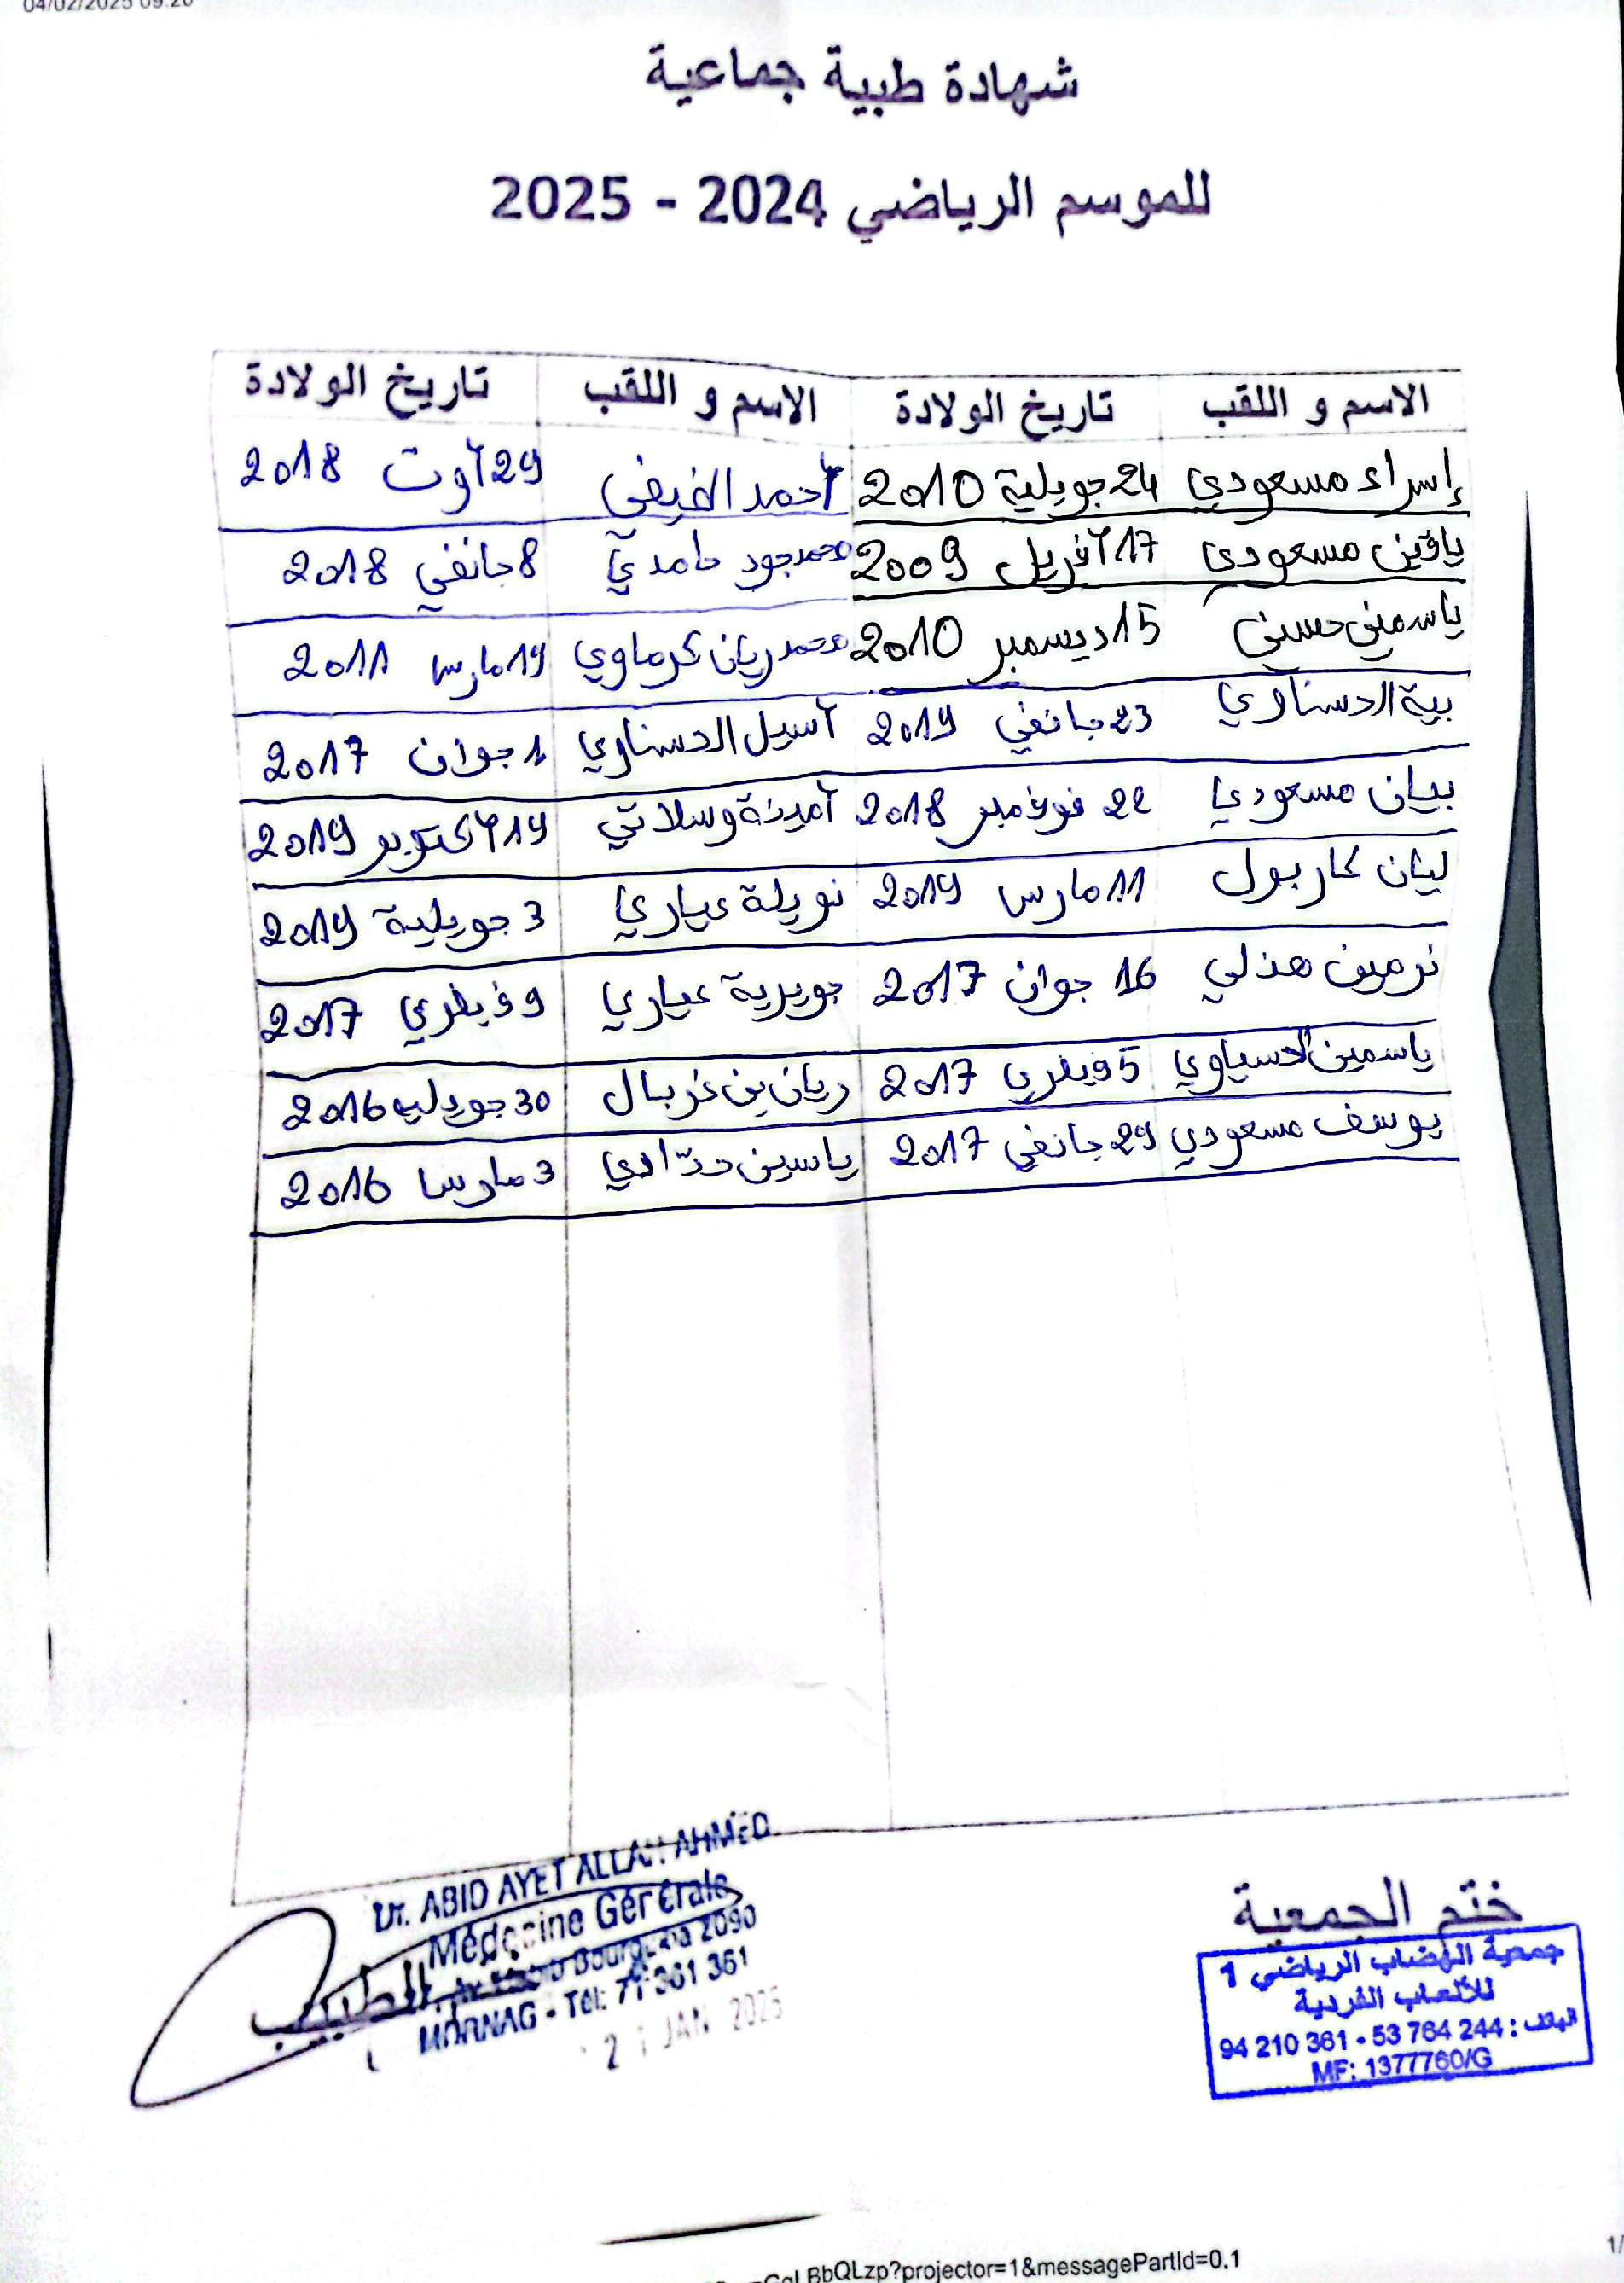 04/02/2025 09:20
شهادة طبية جماعية
للموسم الرياضي 2024 - 2025
الاسم و اللقب تاريخ الولادة الاسم و اللقب تاريخ الولادة
إسراء مسعودي 24 جويلية 2010 أحمد الضيفي 29 أوت 2018
يافين مسعودي 17 أفريل 2009 محمد جود حامدي 8 جانفي 2018
ياسمين حسني 15 ديسمبر 2010 محمد ريان كرماوي 19 مارس 2011
بية الحسناوي 23 جانفي 2019 آسيل الحسناوي 1 جوان 2017
بيان مسعودي 22 نوفمبر 2018 آمينة وسلاتي 19 أكتوبر 2019
ليان كاربول 11 مارس 2019 نويلة عياري 3 جويلية 2019
نرمين هذلي 16 جوان 2017 جويرية عياري 9 فيفري 2017
ياسمين 5 فيفري 2017 ريان بن غربال 30 جويلية 2016
يوسف مسعودي 29 جانفي 2017 ياسين حدّادي 3 مارس 2016
Dr. ABID AYET ALLAH AHMED
Médecine Générale
Bourguiba 2090
MORNAG - Tél: 71 361 361
الطبيب
JAN 2025
ختم الجمعية
جمعية الهضاب الرياضي 1
للألعاب الفردية
الهاتف : 244 764 53 - 361 210 94
MF: 1377760/G
BbQLzp?projector=1&messagePartId=0.1
1/